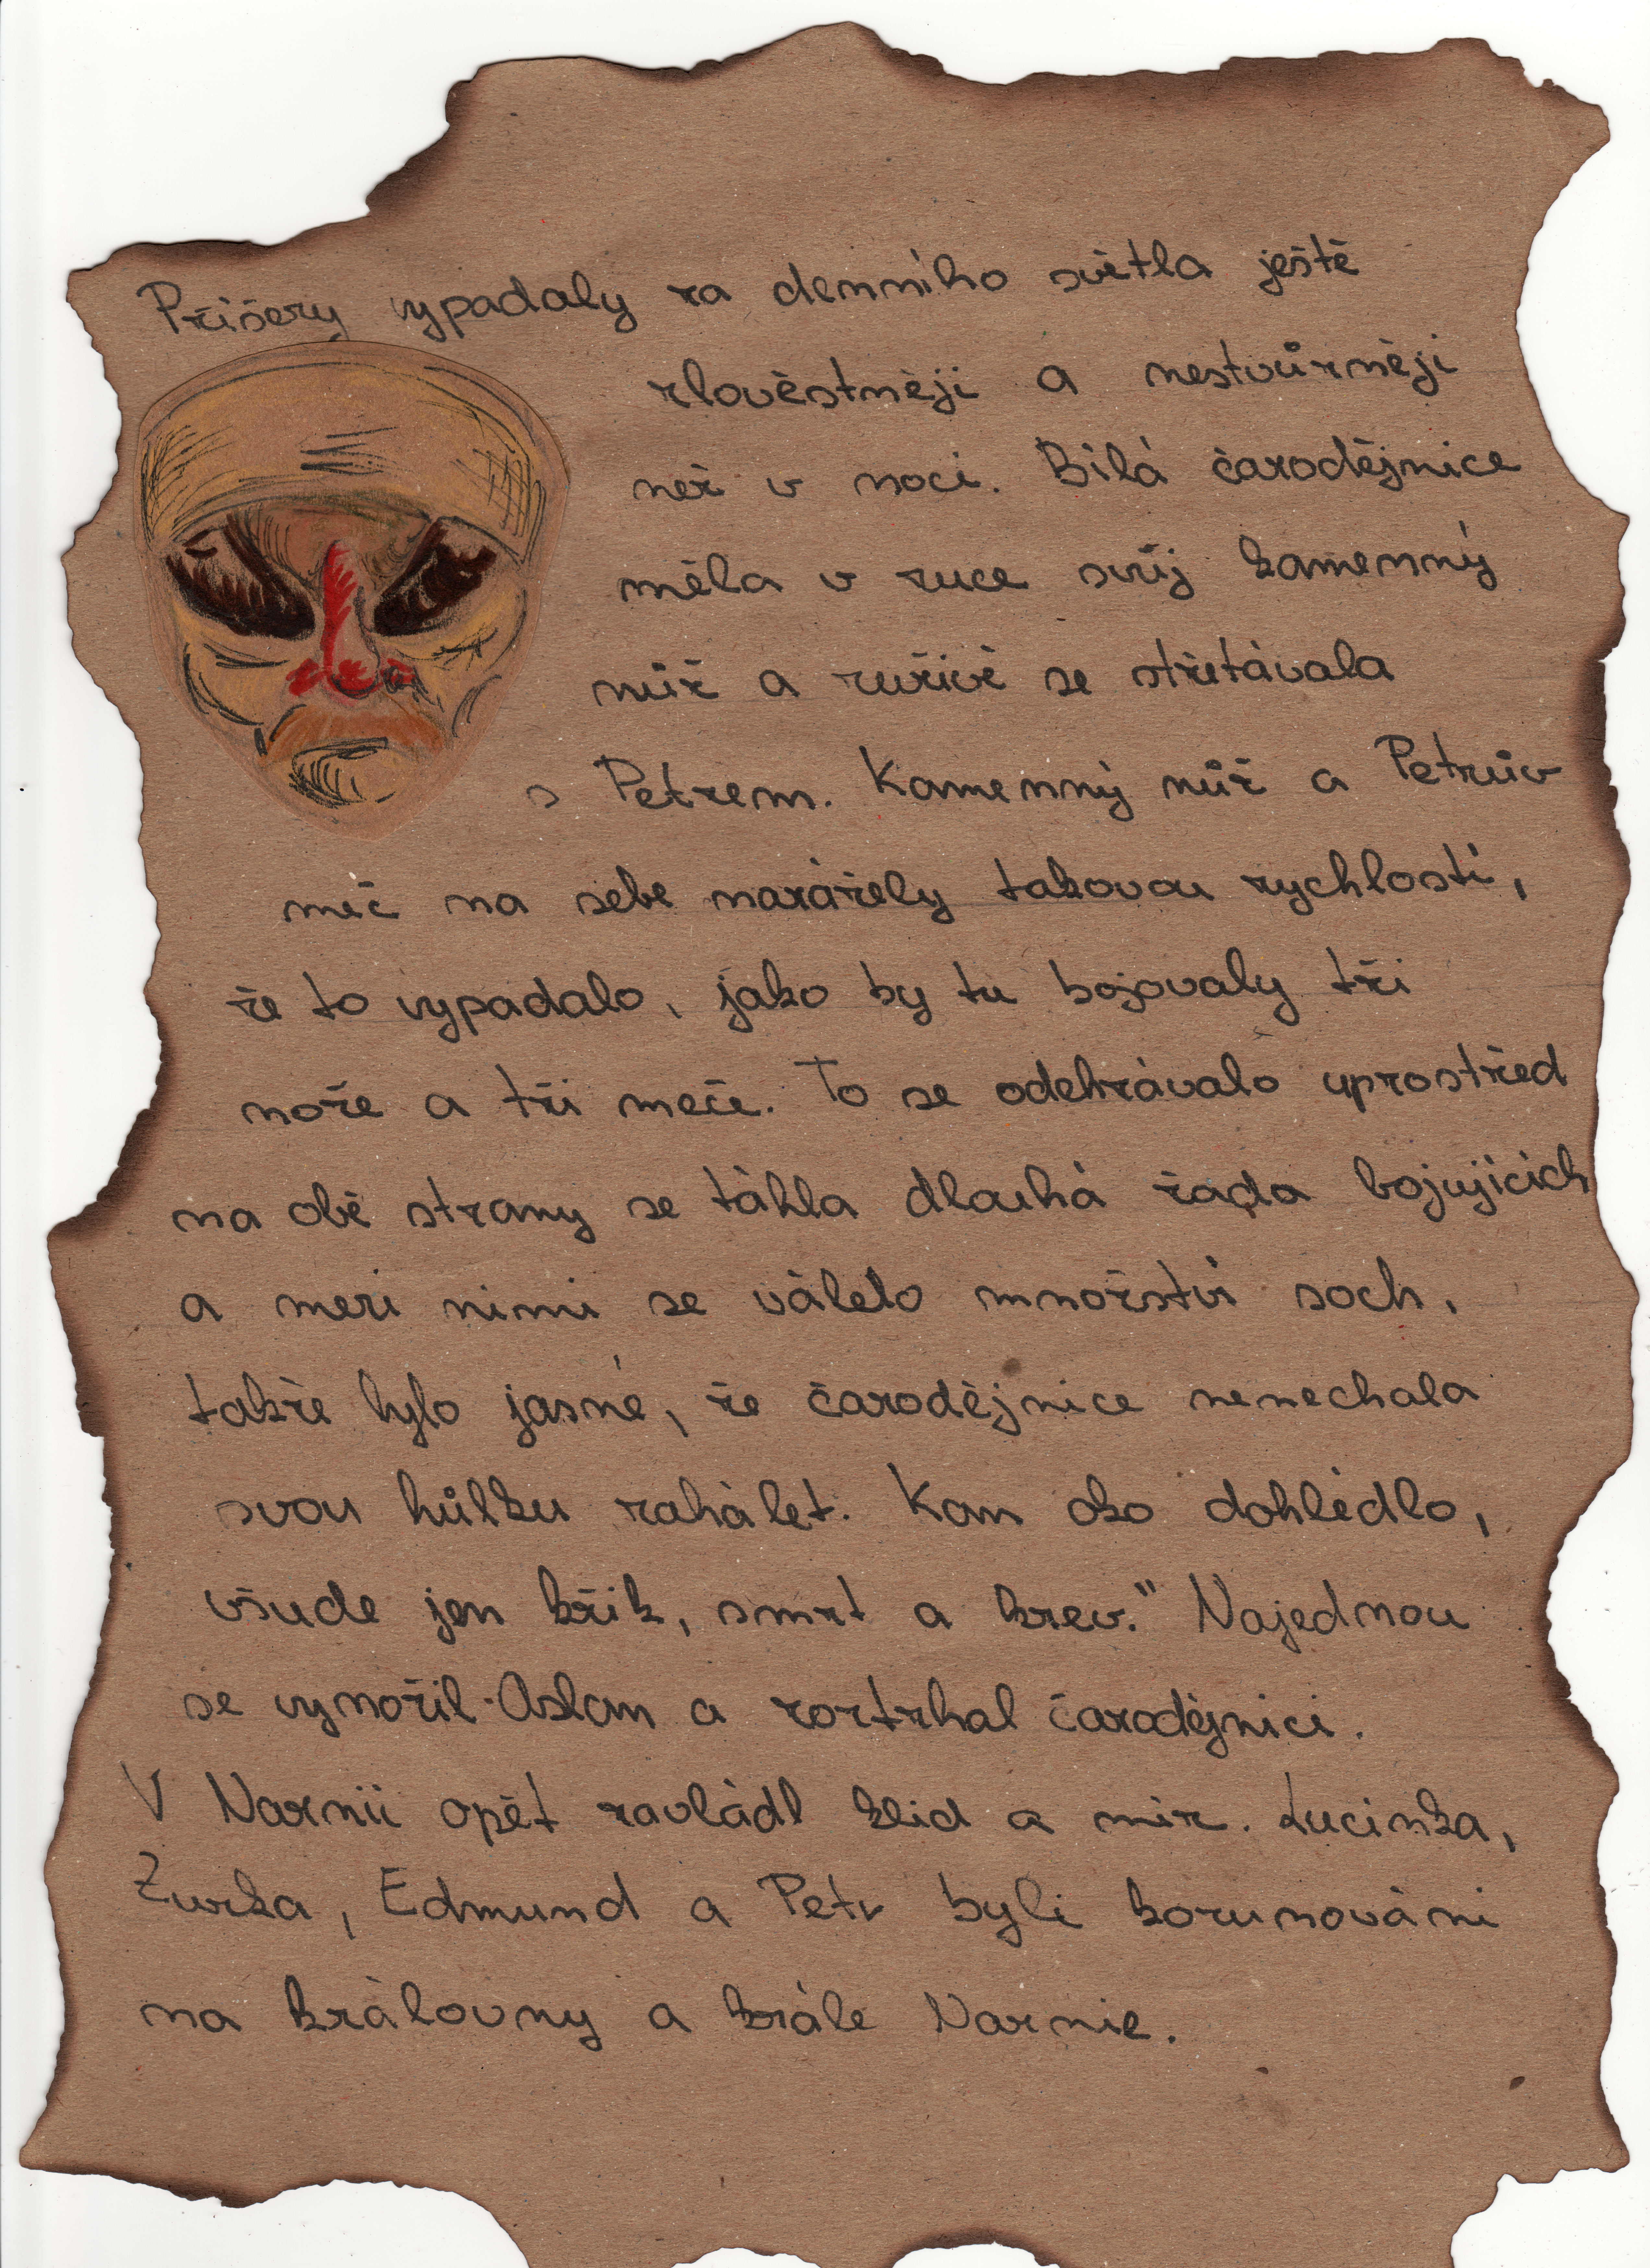 Příšery vypadaly za denního světla ještě
zlověstněji a nestvůrněji
než v noci. Bílá čarodějnice
měla v ruce svůj kamenný
nůž a zuřivě se střetávala
s Petrem. Kamenný nůž a Petrův
meč na sebe narážely takovou rychlostí,
že to vypadalo, jako by tu bojovaly tři
nože a tři meče. To se odehrávalo uprostřed
na obě strany se táhla dlouhá řada bojujících
a mezi nimi se válelo množství soch,
takže bylo jasné, že čarodějnice nenechala
svou hůlku zahálet. Kam oko dohlédlo,
všude jen křik, smrt a krev." Najednou
se vynořil Aslan a roztrhal čarodějnici.
V Narnii opět zavládl klid a mír. Lucinka,
Zuzka, Edmund a Petr byli korunováni
na královny a krále Narnie.